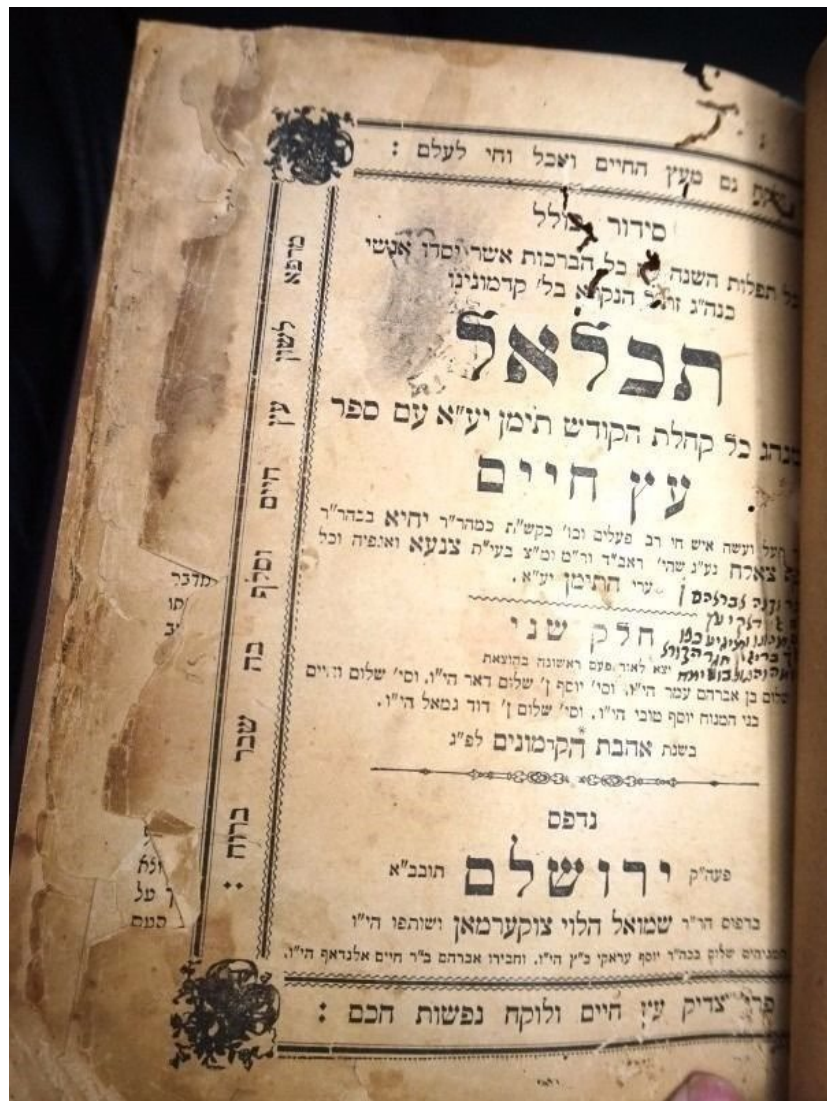 גם מעץ החיים ואכל וחי לעלם :
מרפא לשון עץ חיים וסלף בה שבר ברוח :
סידור כולל
כל תפלות השנה כל הברכות אשר יסדו אנשי
כנה"ג ז"ל הנקרא בל' קדמונינו
תכלאל
כמנהג כל קהלת הקודש תימן יע"א עם ספר
עץ חיים
פעל ועשה איש חי רב פעלים וכו' בקש"ת כמהר"ר יחיא בכהר"ר
צאלח נע"ג שהי' ראב"ד ור"מ ומ"צ בעי"ת צנעא ואגפיה וכל
ערי התימן יע"א.
חלק שני
יצא לאור פעם ראשונה בהוצאת
שלום בן אברהם עמר הי"ו. וסי' יוסף ן' שלום דאר הי"ו. וסי' שלום וחיים
בני המנוח יוסף טובי הי"ו. וסי' שלום ן' דוד גמאל הי"ו.
בשנת אהבת הקדמונים לפ"ג
נדפס
פעה"ק ירושלם תובב"א
בדפוס הר"ר שמואל הלוי צוקערמאן ושותפו הי"ו
המגיהים שלום בכה"ר יוסף עראקי כ"ץ הי"ו. וחבירו אברהם ב"ר חיים אלנדאף הי"ו.
פרי צדיק עץ חיים ולוקח נפשות חכם :
מדבר
ולא
על
העם